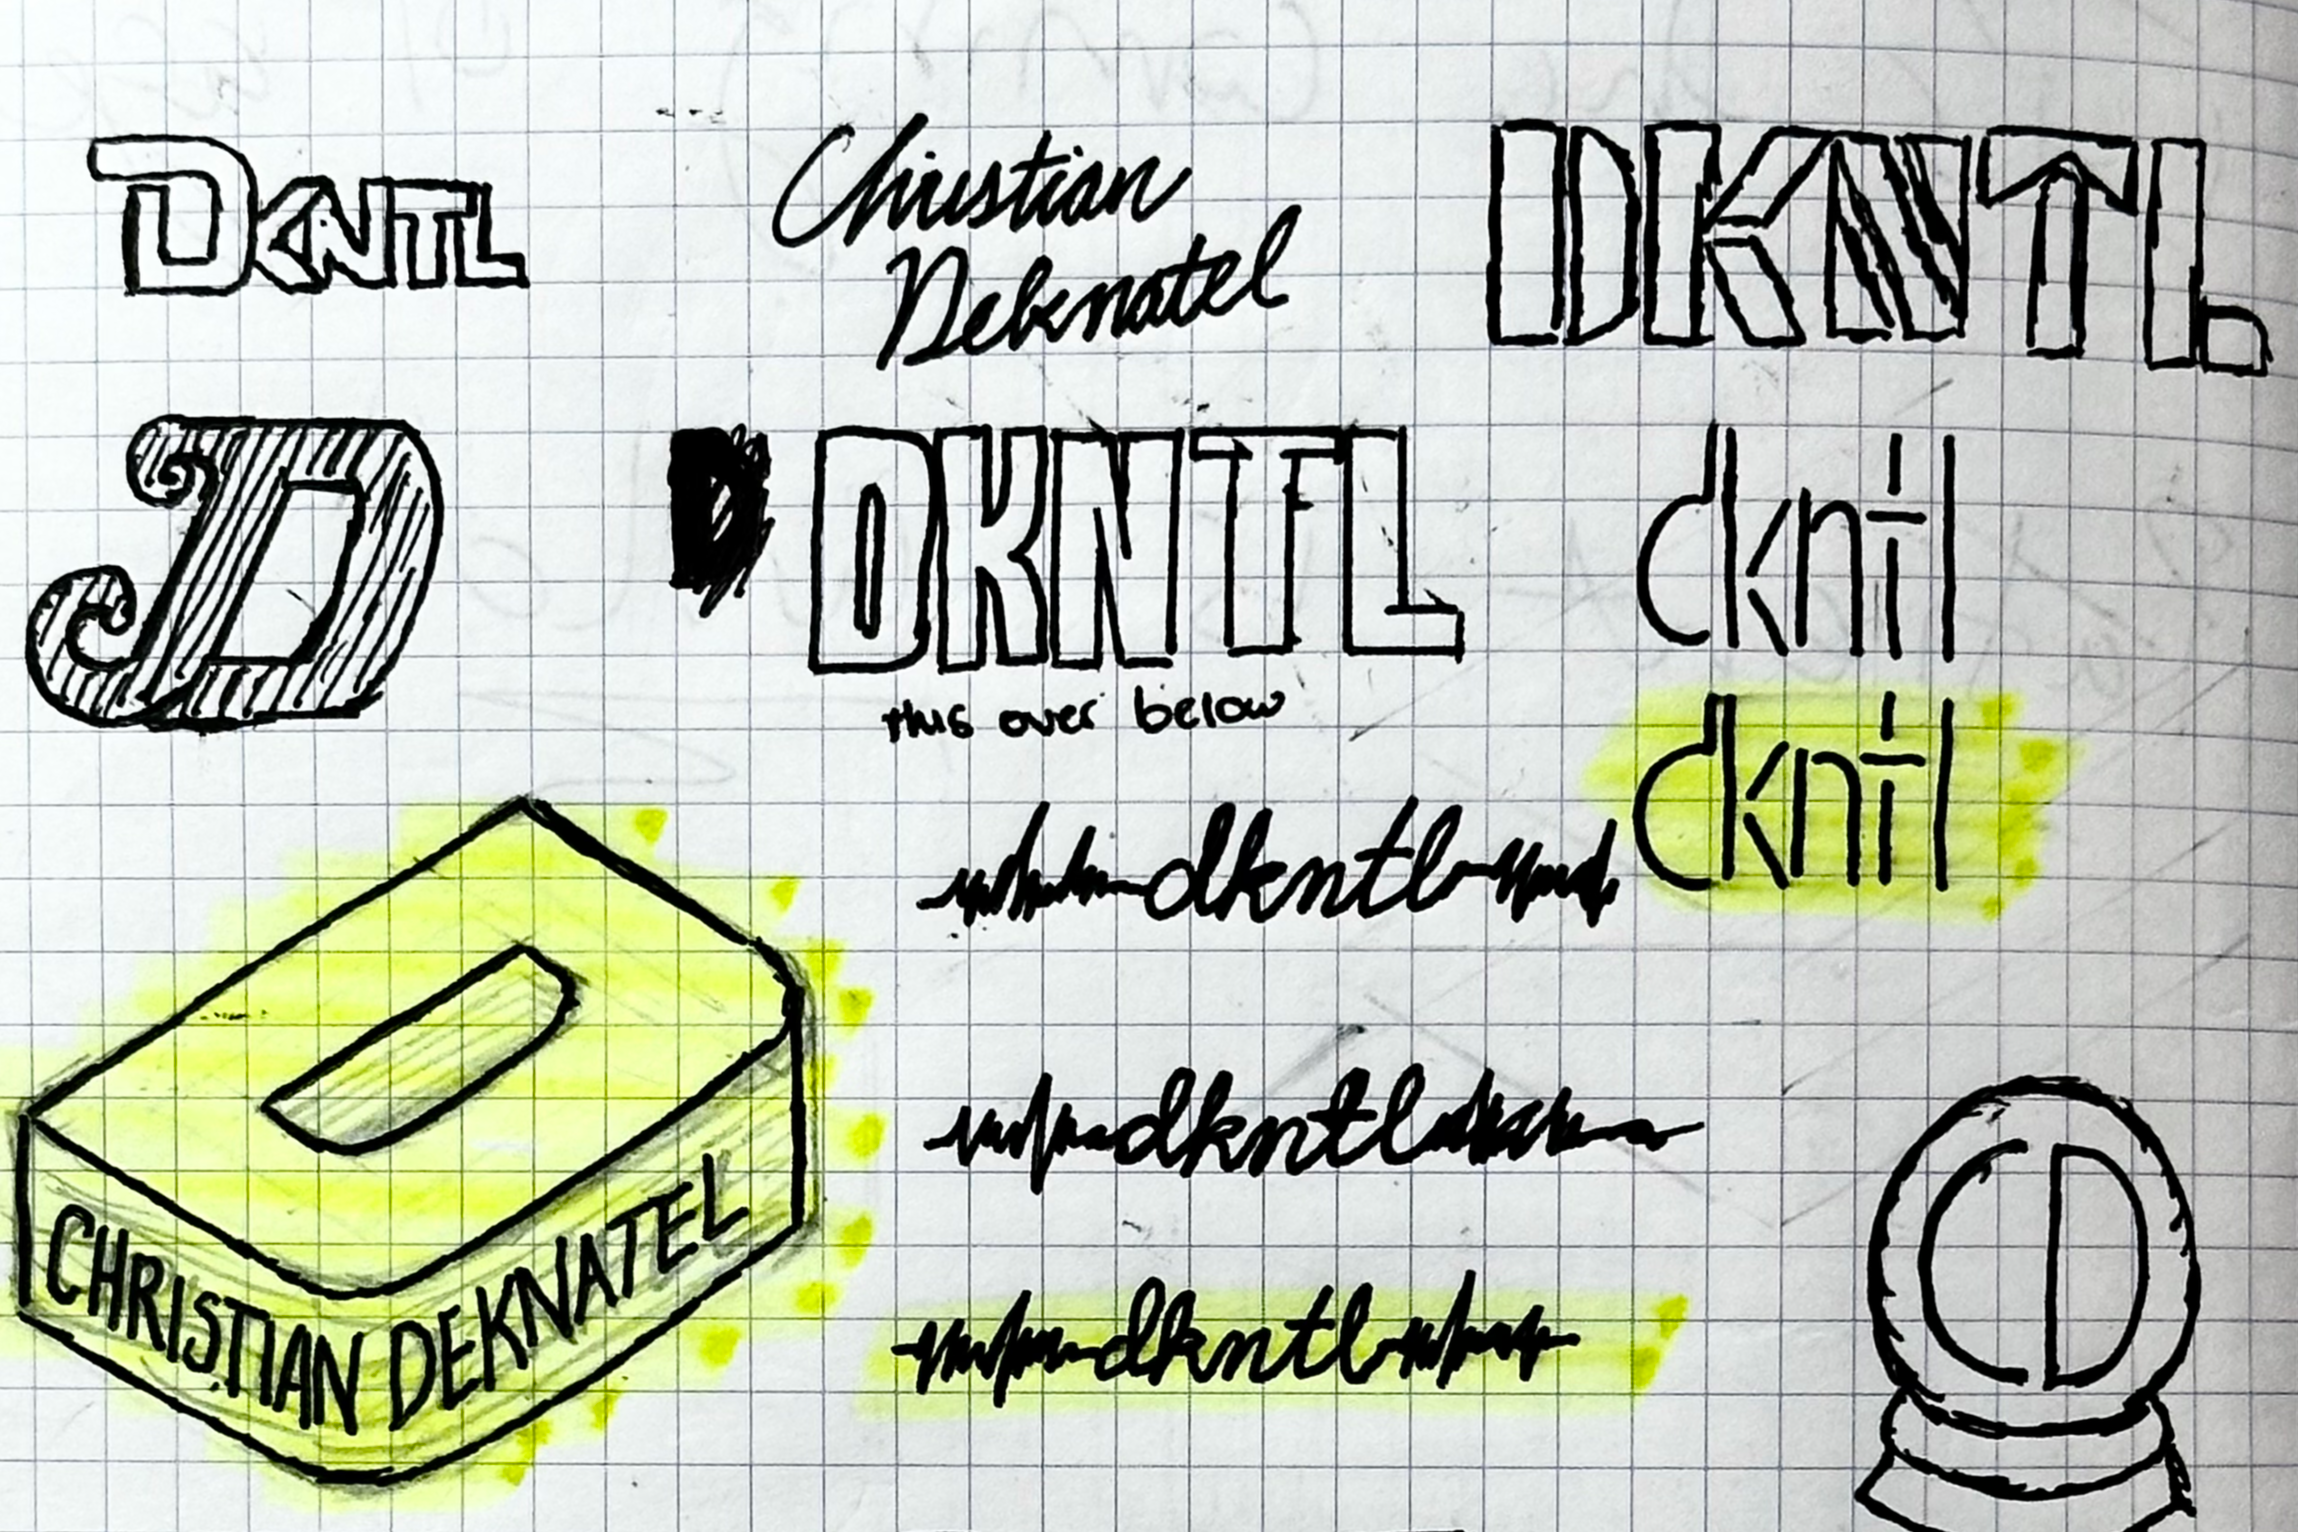 DKNTL
Christian
Deknatel
DKNTL
D
D
DKNTL
this over below
dkntl
dkntl
dkntl
D
CHRISTIAN DEKNATEL
dkntl
dkntl
CD